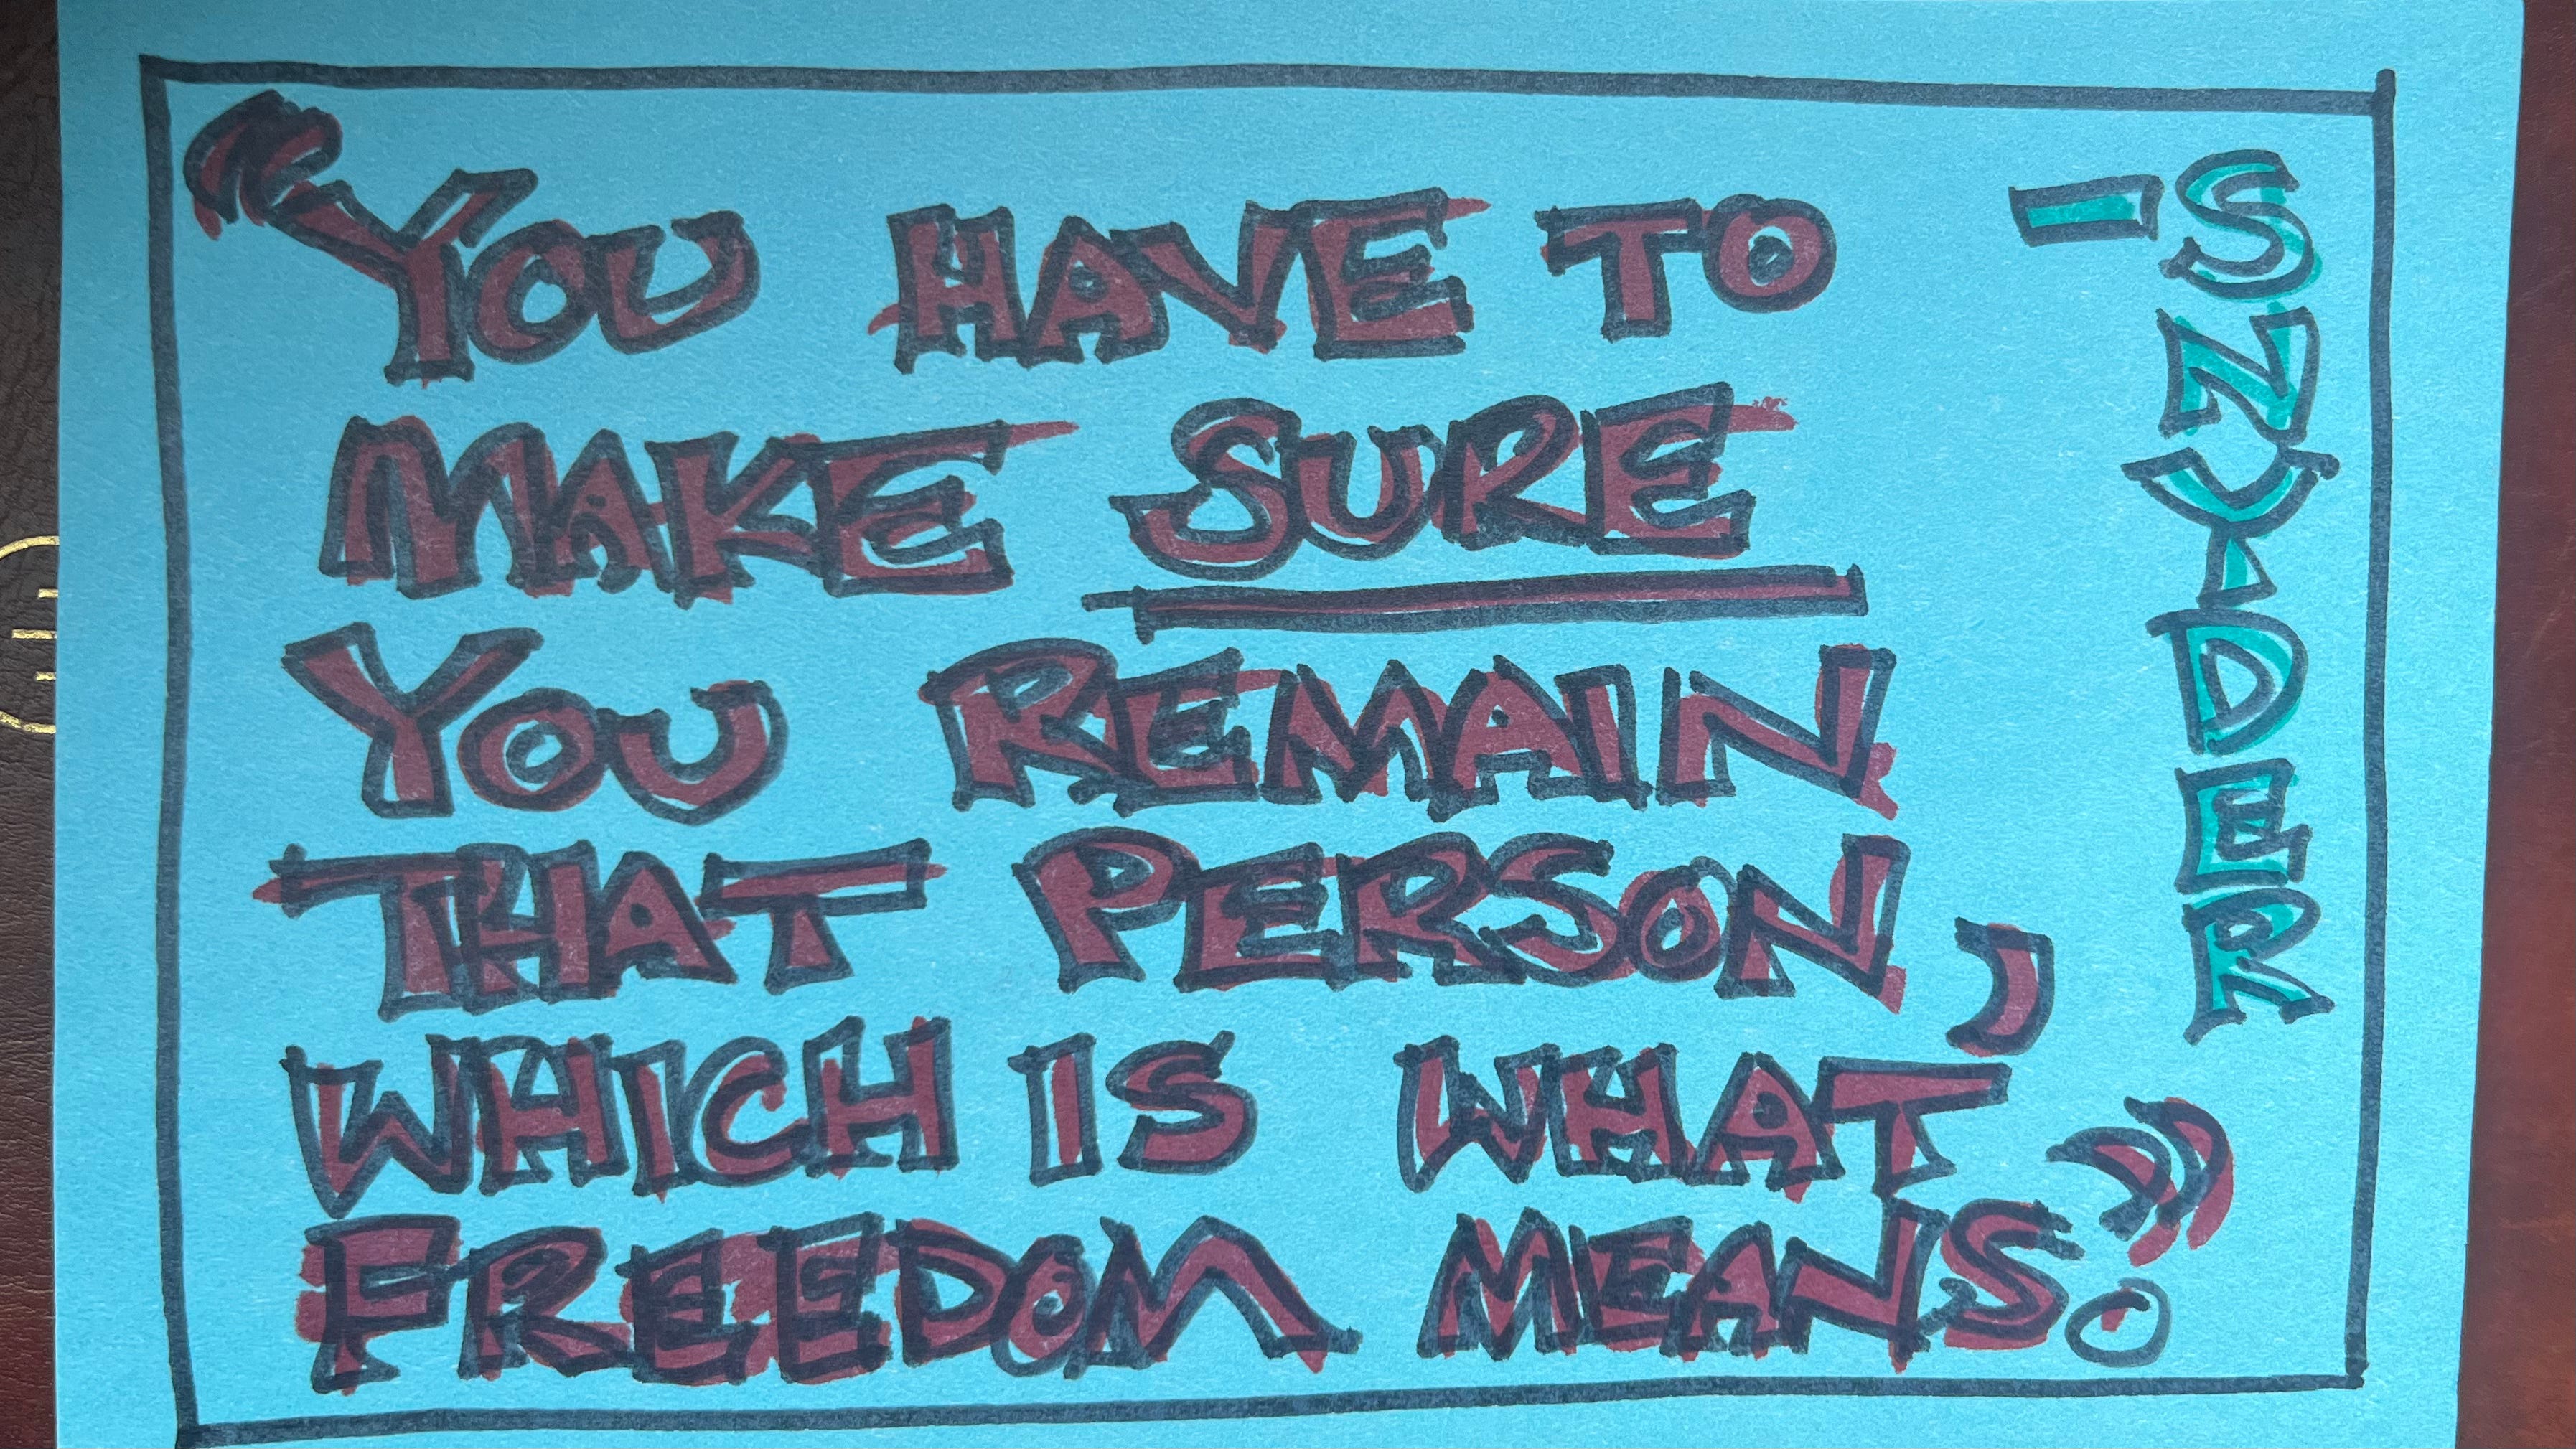 “YOU HAVE TO
MAKE SURE
YOU REMAIN
THAT PERSON,
WHICH IS WHAT
FREEDOM MEANS.”
- SNYDER